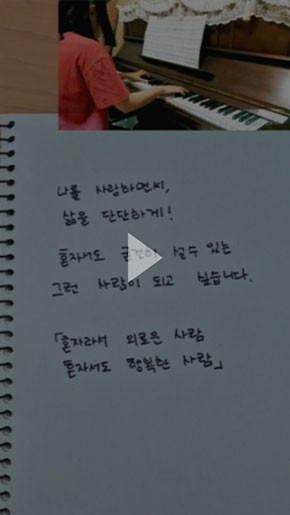 나를 사랑하면서,
삶을 단단하게!
혼자서도 굳건히 설수 있는
그런 사람이 되고 싶습니다.
「혼자라서 외로운 사람
혼자서도 행복한 사람」